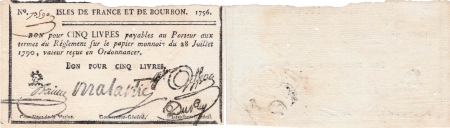 No. ISLES DE FRANCE ET DE BOURBON. 1756.
BON pour CINQ LIVRES payables au Porteur aux
termes du Réglement sur le papier monnoie du 28 Juillet
1790, valeur reçue en Ordonnance.
BON POUR CINQ LIVRES.
Malartic
Dupuy